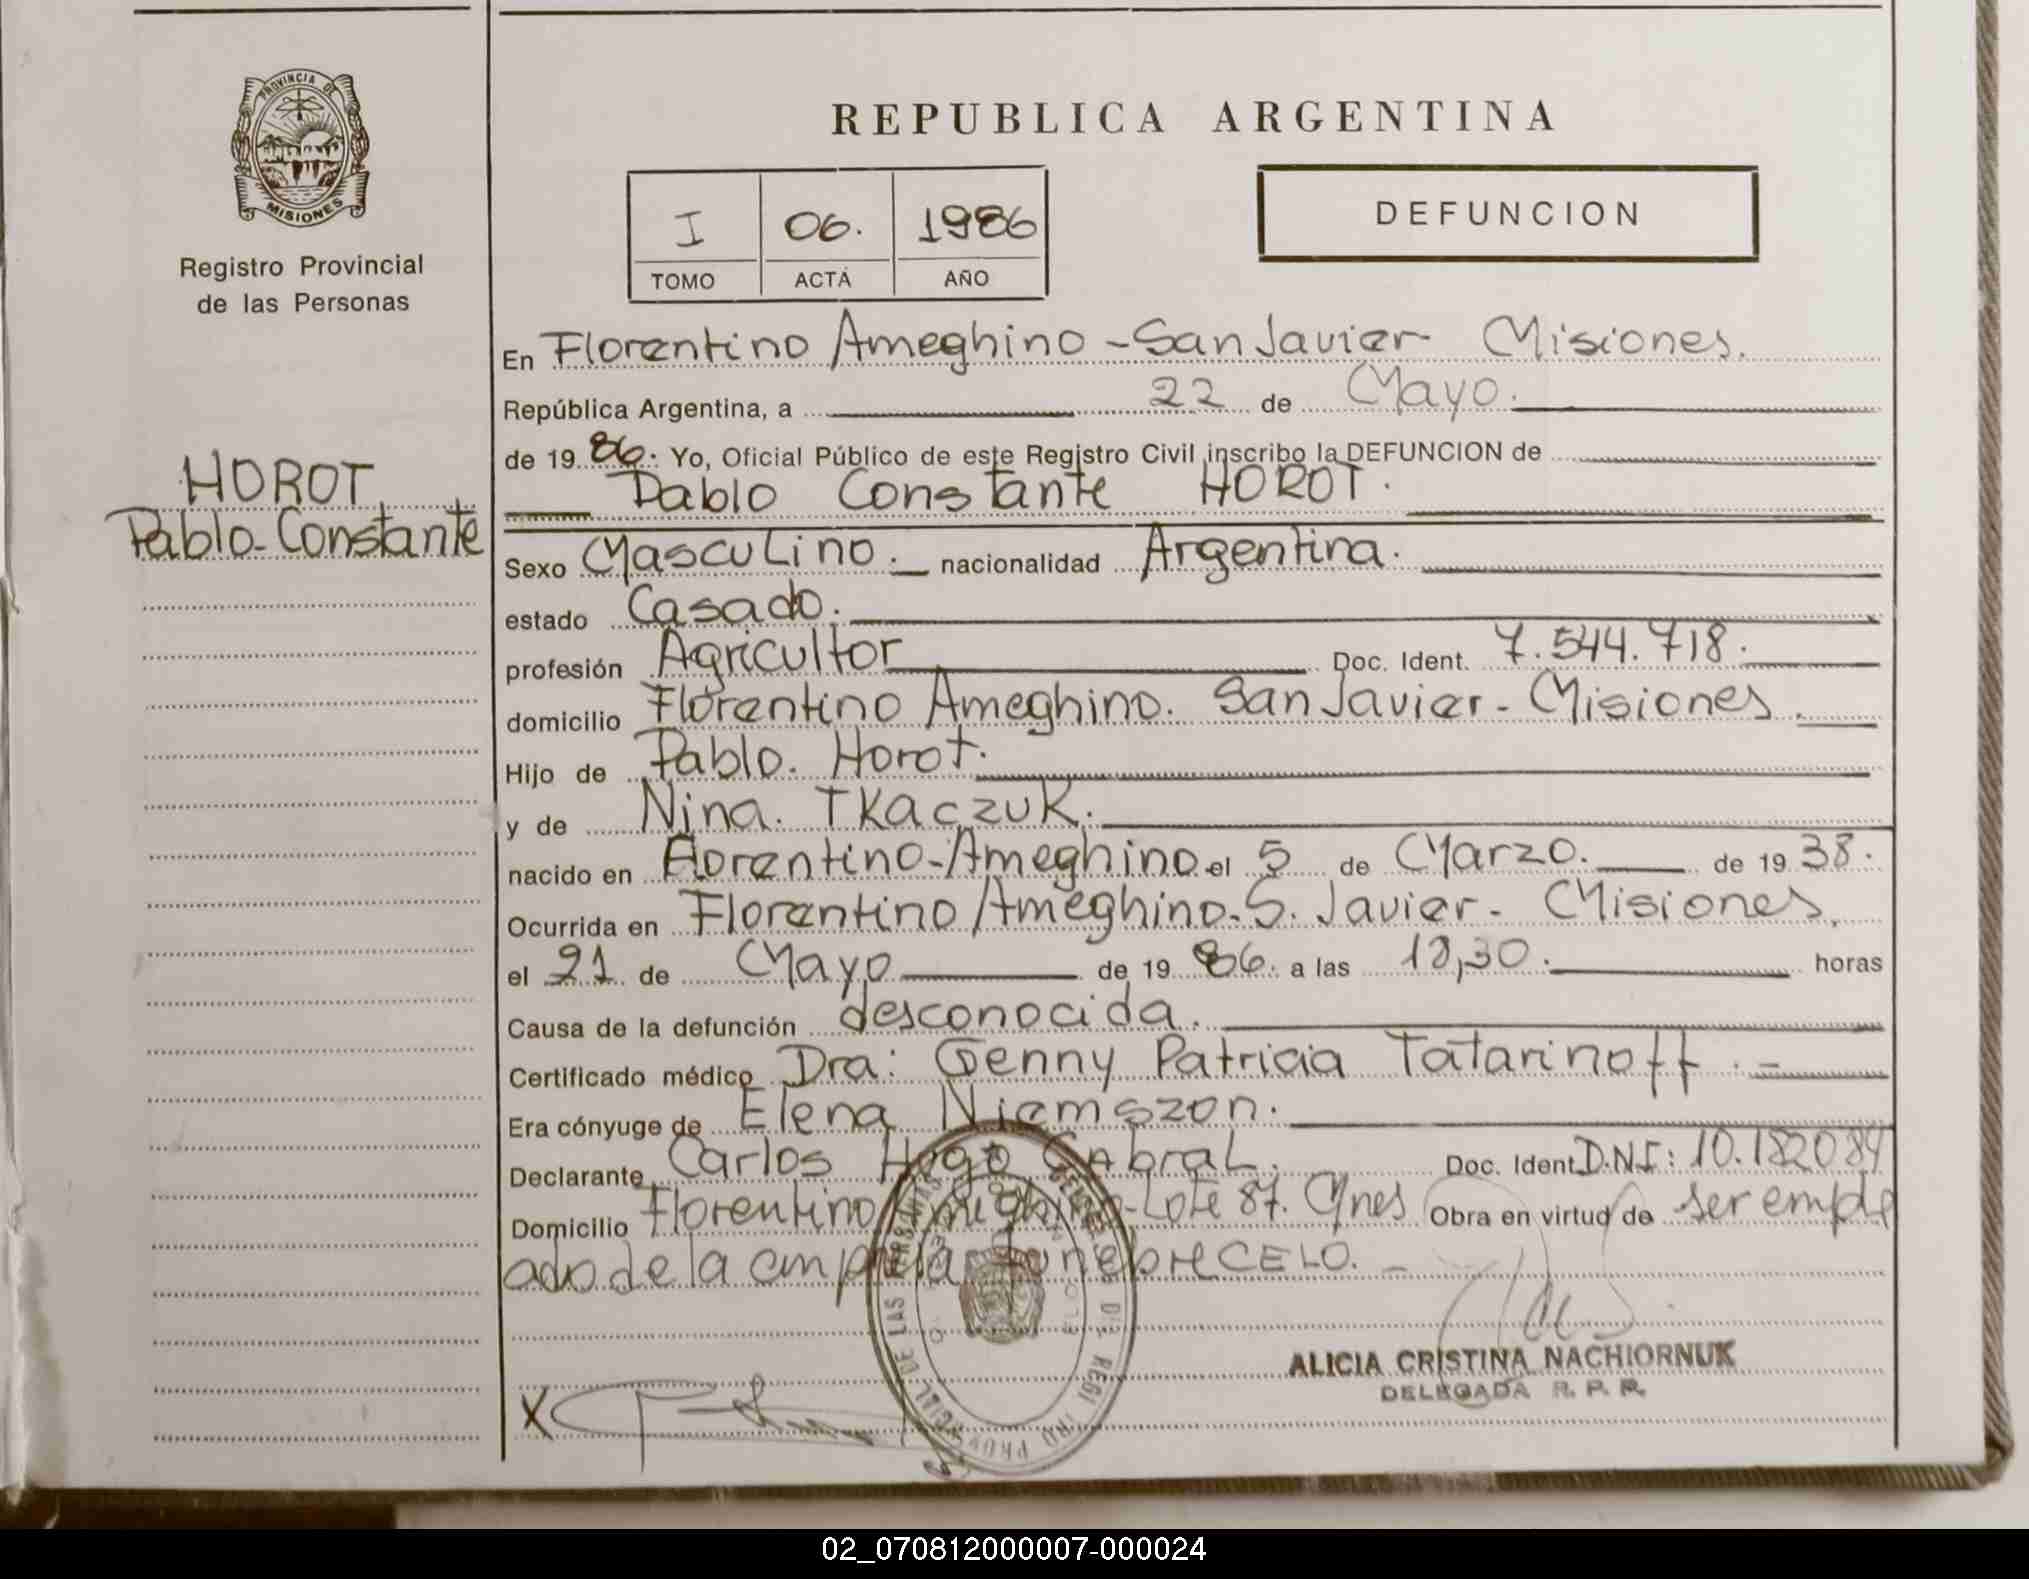 PROVINCIA DE
MISIONES
Registro Provincial
de las Personas
HOROT
Pablo-Constante
REPUBLICA ARGENTINA
I 06. 1986
TOMO ACTA AÑO
DEFUNCION
En Florentino Ameghino - San Javier - Misiones.
República Argentina, a 22 de Mayo.
de 19 86. Yo, Oficial Público de este Registro Civil inscribo la DEFUNCION de
Pablo Constante HOROT.
Sexo Masculino. nacionalidad Argentina.
estado Casado.
profesión Agricultor Doc. Ident. 7.544.718.
domicilio Florentino Ameghino. San Javier - Misiones.
Hijo de Pablo. Horot.
y de Nina. Tkaczuk.
nacido en Florentino-Ameghino el 5 de Marzo. de 19 38.
Ocurrida en Florentino Ameghino-S. Javier - Misiones.
el 21 de Mayo de 19 86. a las 18,30. horas
Causa de la defunción desconocida.
Certificado médico Dra: Genny Patricia Tatarinoff. -
Era cónyuge de Elena Niemszon.
Declarante Carlos Hugo Cabral. Doc. Ident D.N.I: 10.182084
Domicilio Florentino Ameghino-Lote 87. Mnes Obra en virtud de ser emple
ado de la empresa funebre CELO. -
ALICIA CRISTINA NACHIORNUK
DELEGADA R. P. P.
X
02_070812000007-000024